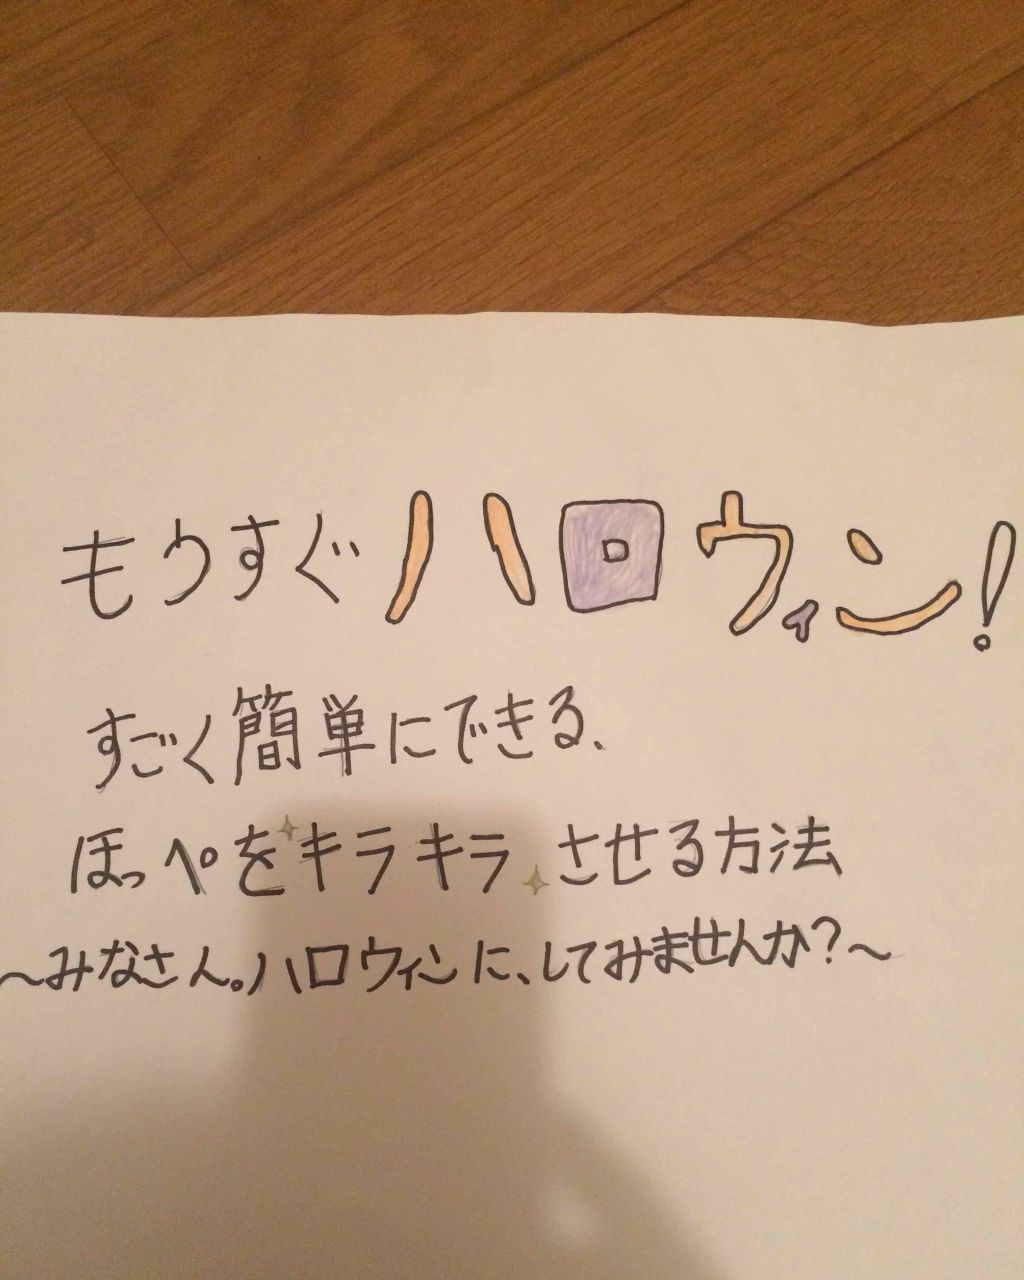 もうすぐハロウィン!
すごく簡単にできる、
ほっぺをキラキラさせる方法
~みなさん。ハロウィンに、してみませんか?~